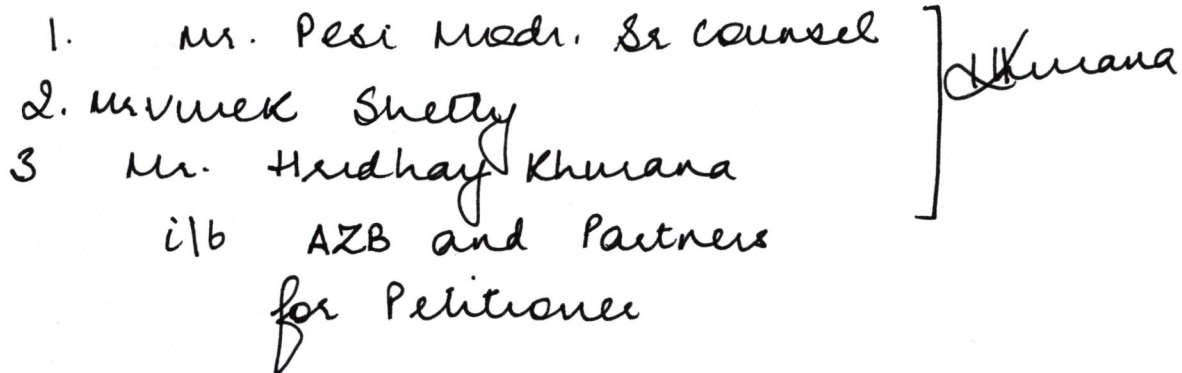 1. Mr. Pesi Modi. Sr Counsel
2. Mr Vivek Shetty
3 Mr. Hridhay Khurana
i/b AZB and Partners
for Petitioner
HKhurana